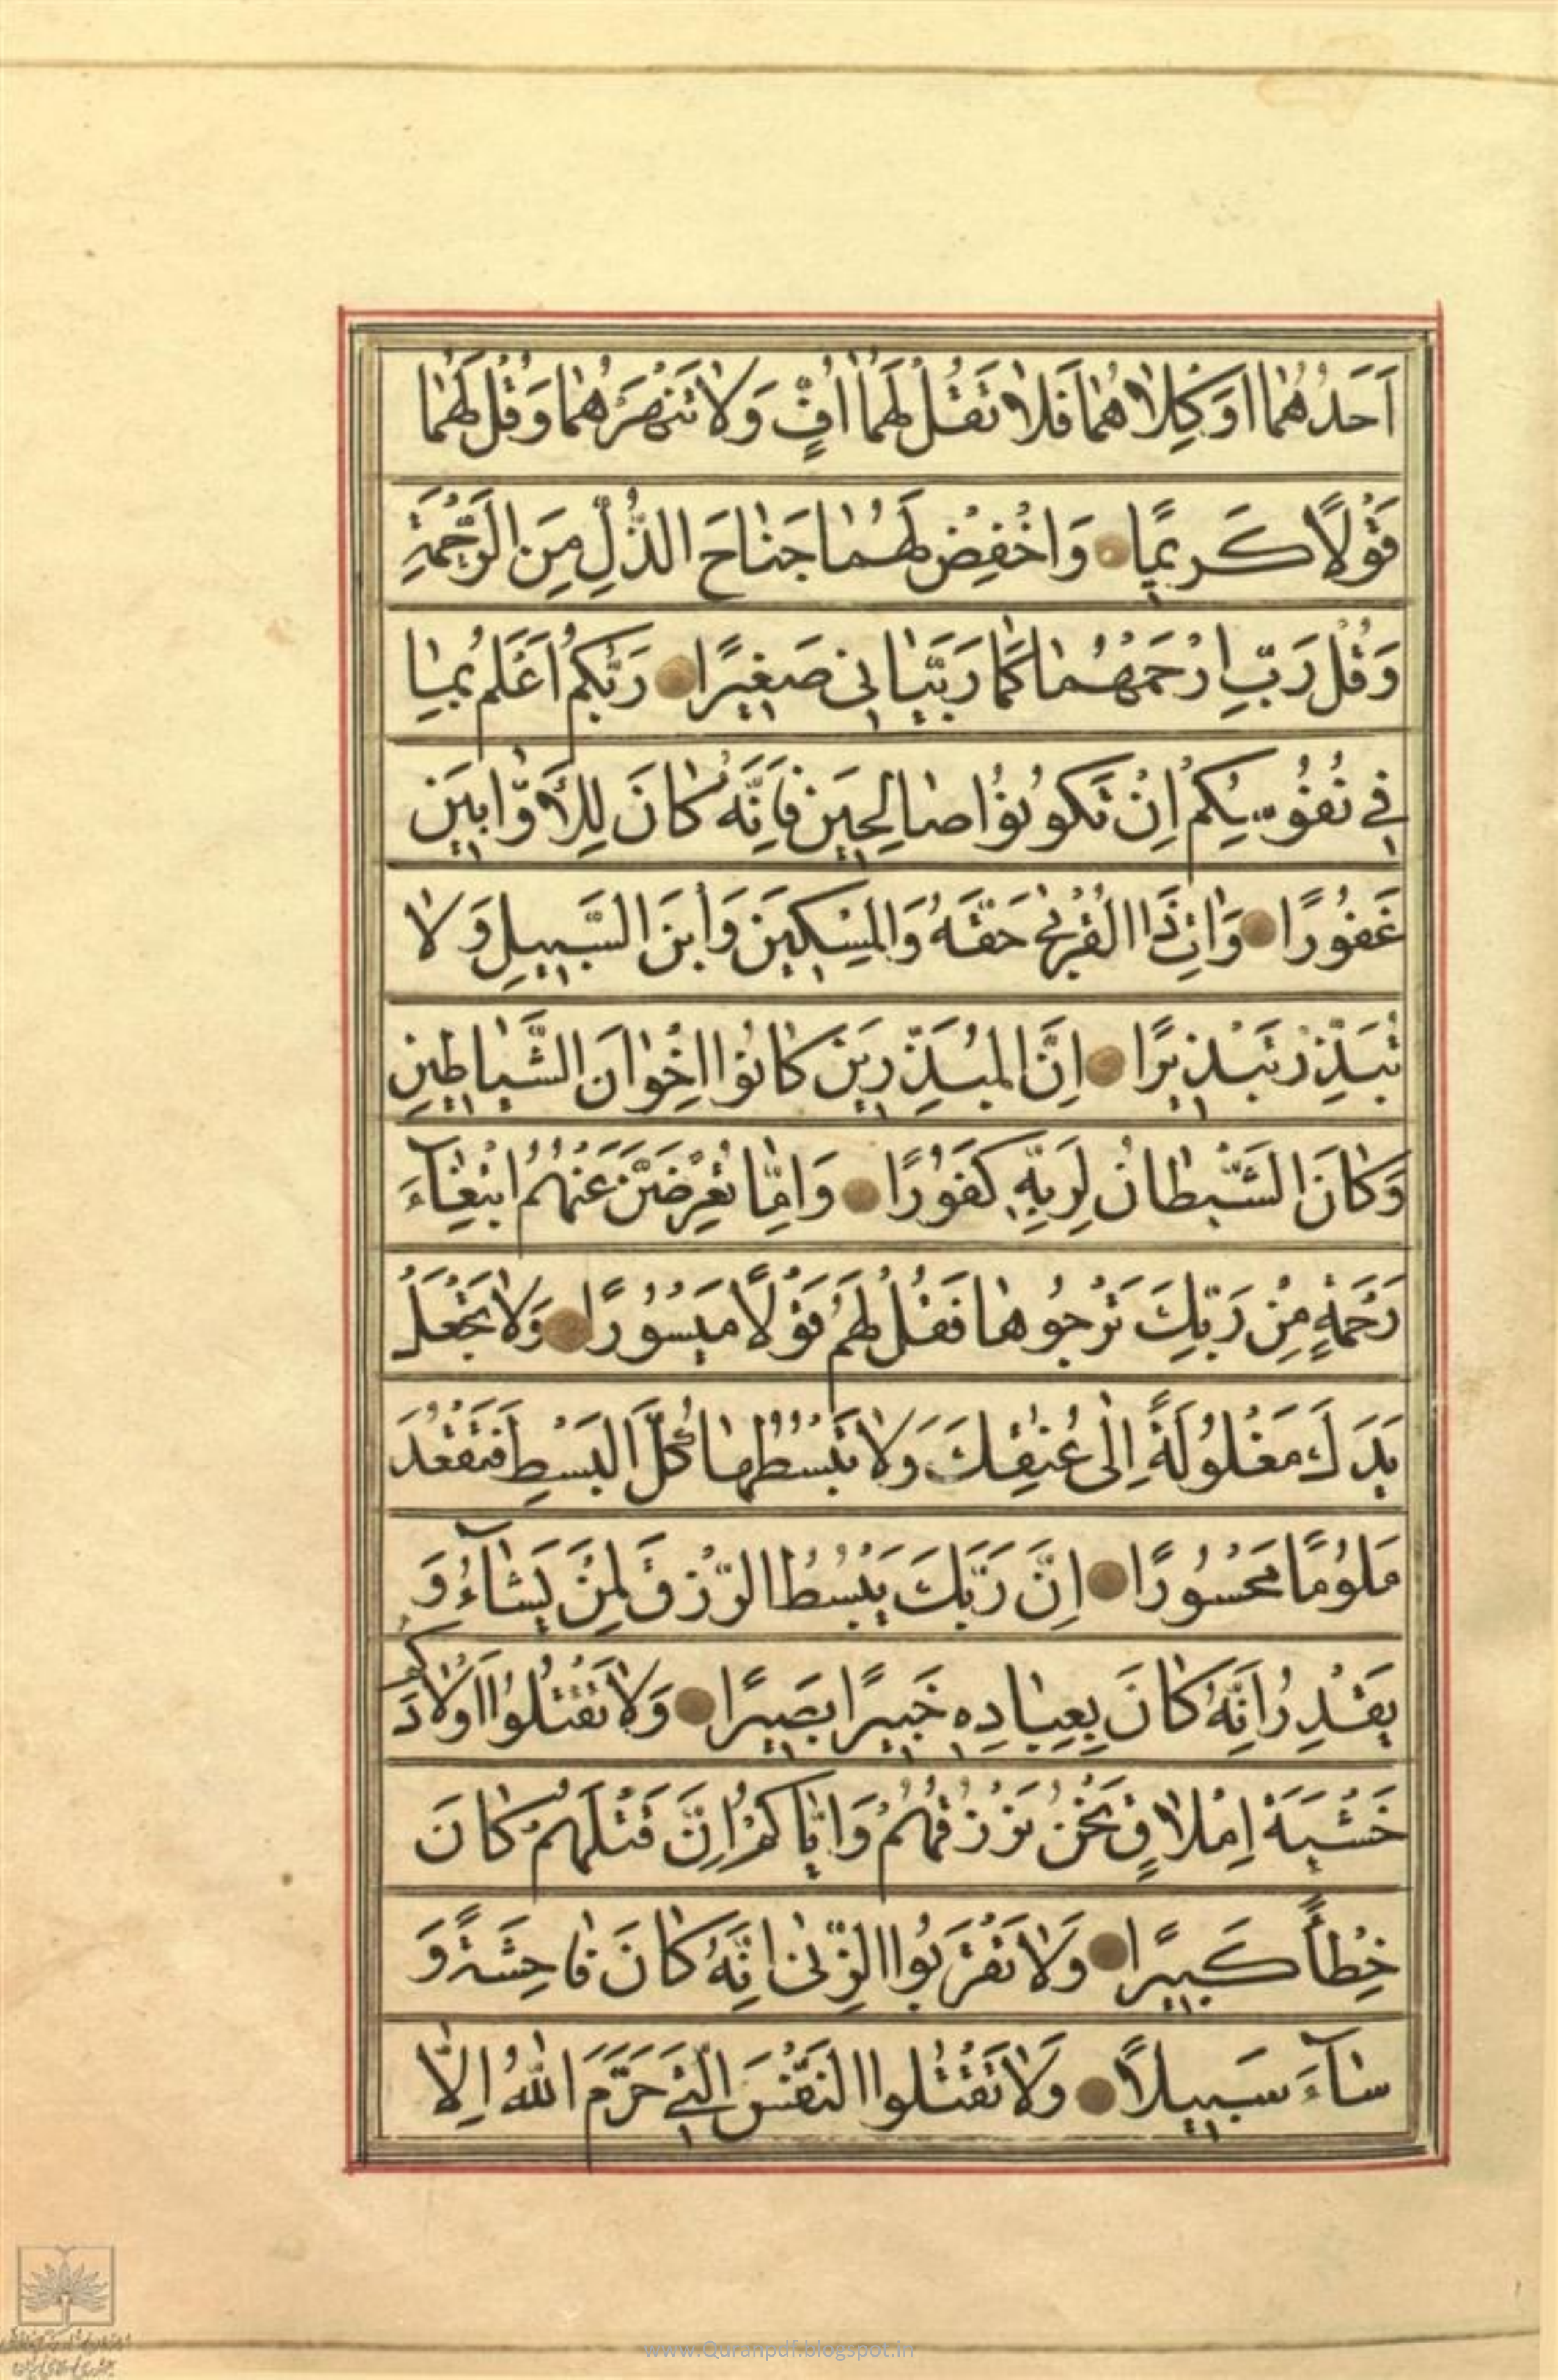 اَحَدُهُمٰا اَوْ كِلاٰهُمٰا فَلاٰ تَقُلْ لَهُمٰا اُفٍّ وَلاٰ تَنْهَرْهُمٰا وَقُلْ لَهُمٰا
قَوْلاً كَرِيمًا وَاخْفِضْ لَهُمٰا جَنٰاحَ الذُّلِّ مِنَ الرَّحْمَةِ
وَقُلْ رَبِّ ارْحَمْهُمٰا كَمٰا رَبَّيٰانِى صَغِيرًا رَبُّكُمْ اَعْلَمُ بِمٰا
فِى نُفُوسِكُمْ اِنْ تَكُونُوا صٰالِحِينَ فَاِنَّهُ كٰانَ لِلْأَوّٰابِينَ
غَفُورًا وَاٰتِ ذَا الْقُرْبىٰ حَقَّهُ وَالْمِسْكِينَ وَابْنَ السَّبِيلِ وَلاٰ
تُبَذِّرْ تَبْذِيرًا اِنَّ الْمُبَذِّرِينَ كٰانُوا اِخْوٰانَ الشَّيٰاطِينِ
وَكٰانَ الشَّيْطٰانُ لِرَبِّهِ كَفُورًا وَاِمّٰا تُعْرِضَنَّ عَنْهُمُ ابْتِغٰآءَ
رَحْمَةٍ مِنْ رَبِّكَ تَرْجُوهٰا فَقُلْ لَهُمْ قَوْلاً مَيْسُورًا وَلاٰ تَجْعَلْ
يَدَكَ مَغْلُولَةً اِلٰى عُنُقِكَ وَلاٰ تَبْسُطْهٰا كُلَّ الْبَسْطِ فَتَقْعُدَ
مَلُومًا مَحْسُورًا اِنَّ رَبَّكَ يَبْسُطُ الرِّزْقَ لِمَنْ يَشٰآءُ وَ
يَقْدِرُ اِنَّهُ كٰانَ بِعِبٰادِهِ خَبِيرًا بَصِيرًا وَلاٰ تَقْتُلُوا اَوْلاٰدَكُمْ
خَشْيَةَ اِمْلاٰقٍ نَحْنُ نَرْزُقُهُمْ وَاِيّٰاكُمْ اِنَّ قَتْلَهُمْ كٰانَ
خِطْأً كَبِيرًا وَلاٰ تَقْرَبُوا الزِّنىٰ اِنَّهُ كٰانَ فٰاحِشَةً وَ
سٰآءَ سَبِيلاً وَلاٰ تَقْتُلُوا النَّفْسَ الَّتِى حَرَّمَ اللّٰهُ اِلاّٰ
www.Quranpdf.blogspot.in